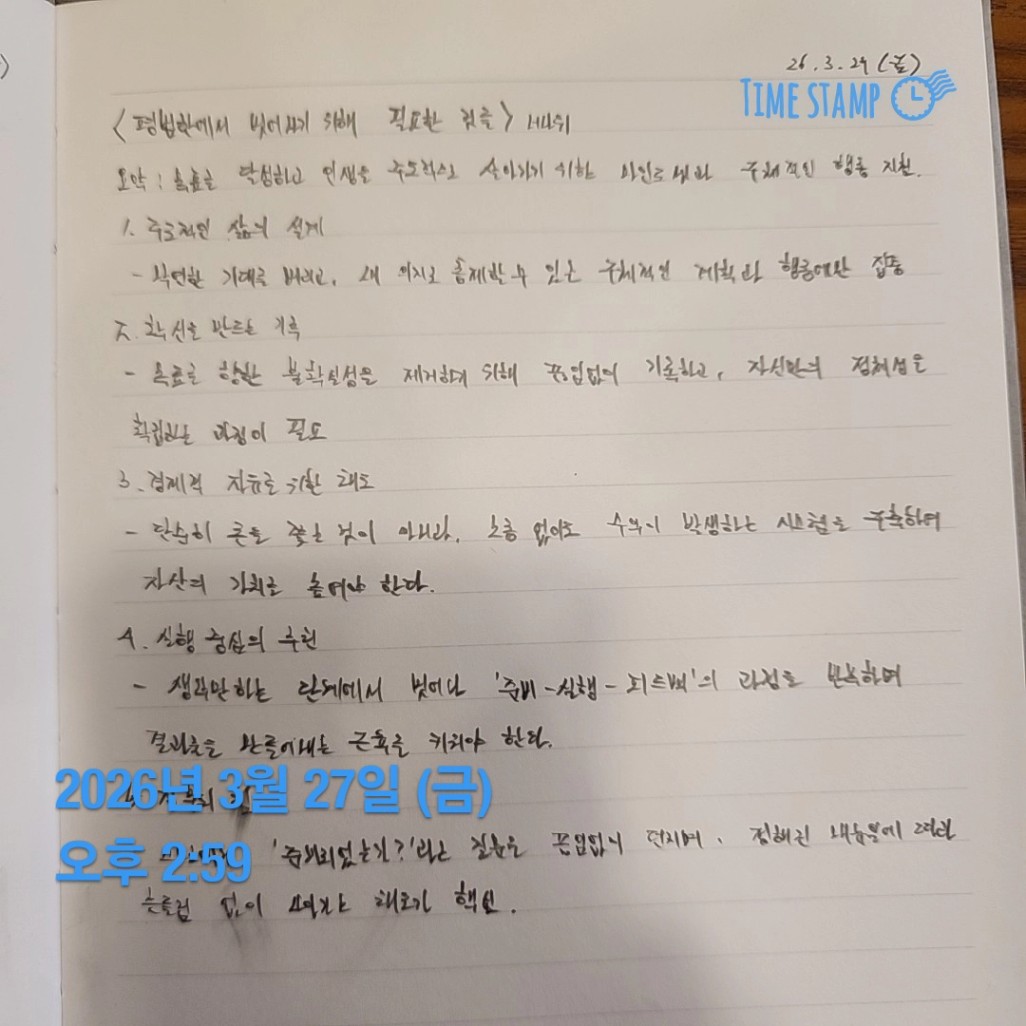 26.3.27 (금)
TIME STAMP
<평범함에서 벗어나기 위해 필요한 것들>
요약 : 목표를 달성하고 인생을 주도적으로 살아가기 위한 마인드셋과 구체적인 행동 지침.
1. 주도적인 삶의 설계
- 막연한 기대를 버리고, 내 의지로 통제할 수 있는 구체적인 계획과 행동에만 집중
2. 확신을 만드는 기록
- 목표를 향한 불확실성을 제거하기 위해 끊임없이 기록하고, 자신만의 정체성을
확립하는 과정이 필요
3. 경제적 자유를 위한 태도
- 단순히 큰돈을 쫓는 것이 아니라, 노동 없이도 수익이 발생하는 시스템을 구축하며
자산의 가치를 높여야 한다.
4. 실행 중심의 훈련
- 생각만 하는 단계에서 벗어나 '준비-실행-피드백'의 과정을 반복하며
결과물을 만들어내는 근육을 키워야 한다.
2026년 3월 27일 (금)
'준비되었는가?'라는 질문을 끊임없이 던지며, 정해진 데드라인에 따라
오후 2:59
흔들림 없이 나아가는 태도가 핵심.